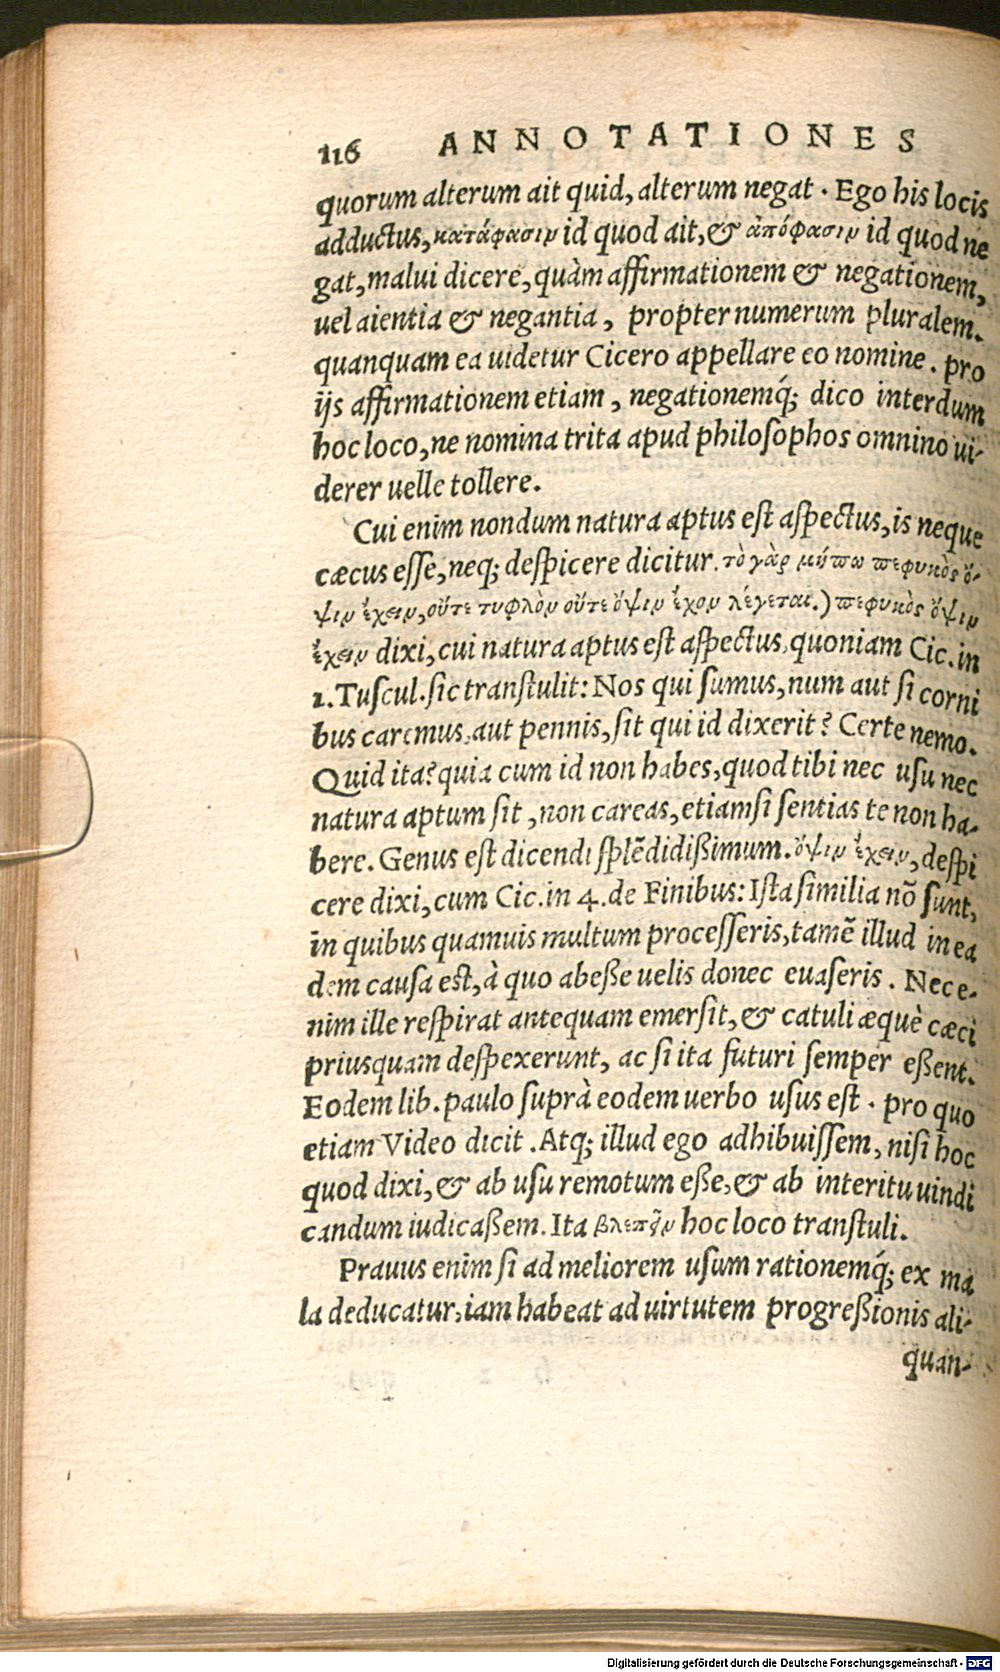 116 ANNOTATIONES
quorum alterum ait quid, alterum negat. Ego his locis
adductus, κατάφασιν id quod ait, & ἀπόφασιν id quod ne
gat, malui dicere, quàm affirmationem & negationem,
uel aientia & negantia, propter numerum pluralem.
quanquam ea uidetur Cicero appellare eo nomine. pro
ijs affirmationem etiam, negationemq́; dico interdum
hoc loco, ne nomina trita apud philoſophos omnino ui-
derer uelle tollere.
Cui enim nondum natura aptus eſt aſpectus, is neque
cæcus eſſe, neq; deſpicere dicitur. τὸ γὰρ μήπω πεφυκὸς ὄ-
ψιν ἔχειν, οὔτε τυφλὸν οὔτε ὄψιν ἔχον λέγεται.) πεφυκὸς ὄψιν
ἔχειν dixi, cui natura aptus eſt aſpectus, quoniam Cic. in
1. Tuſcul. ſic tranſtulit: Nos qui ſumus, num aut ſi corni
bus caremus, aut pennis, ſit qui id dixerit? Certe nemo.
Quid ita? quia cum id non habes, quod tibi nec uſu nec
natura aptum ſit, non careas, etiamſi ſentias te non ha-
bere. Genus eſt dicendi ſplẽdidißimum. ὄψιν ἔχειν, deſpi
cere dixi, cum Cic. in 4. de Finibus: Iſta ſimilia nõ ſunt,
in quibus quamuis multum proceſſeris, tamẽ illud in ea
dem cauſa eſt, à quo abeße uelis donec euaſeris. Nec e-
nim ille reſpirat antequam emerſit, & catuli æquè cæci
priusquam deſpexerunt, ac ſi ita futuri ſemper eßent.
Eodem lib. paulo ſuprà eodem uerbo uſus eſt. pro quo
etiam Video dicit. Atq; illud ego adhibuiſſem, niſi hoc
quod dixi, & ab uſu remotum eße, & ab interitu uindi
candum iudicaßem. Ita βλεπῆν hoc loco tranſtuli.
Prauus enim ſi ad meliorem uſum rationemq́; ex ma
la deducatur, iam habeat ad uirtutem progreßionis ali-
quan-
Digitalisierung gefördert durch die Deutsche Forschungsgemeinschaft - DFG